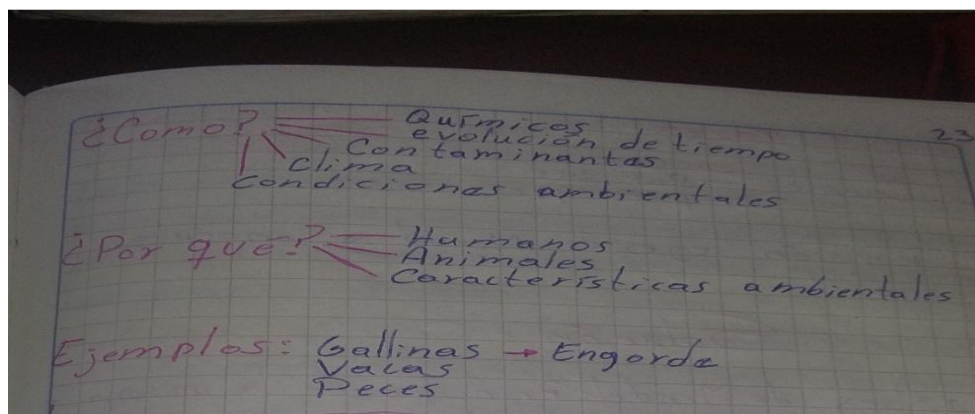 23
¿Como? Químicos
evolución de tiempo
Contaminantes
Clima
Condiciones ambientales
¿Por qué? Humanos
Animales
Características ambientales
Ejemplos: Gallinas → Engorde
Vacas
Peces